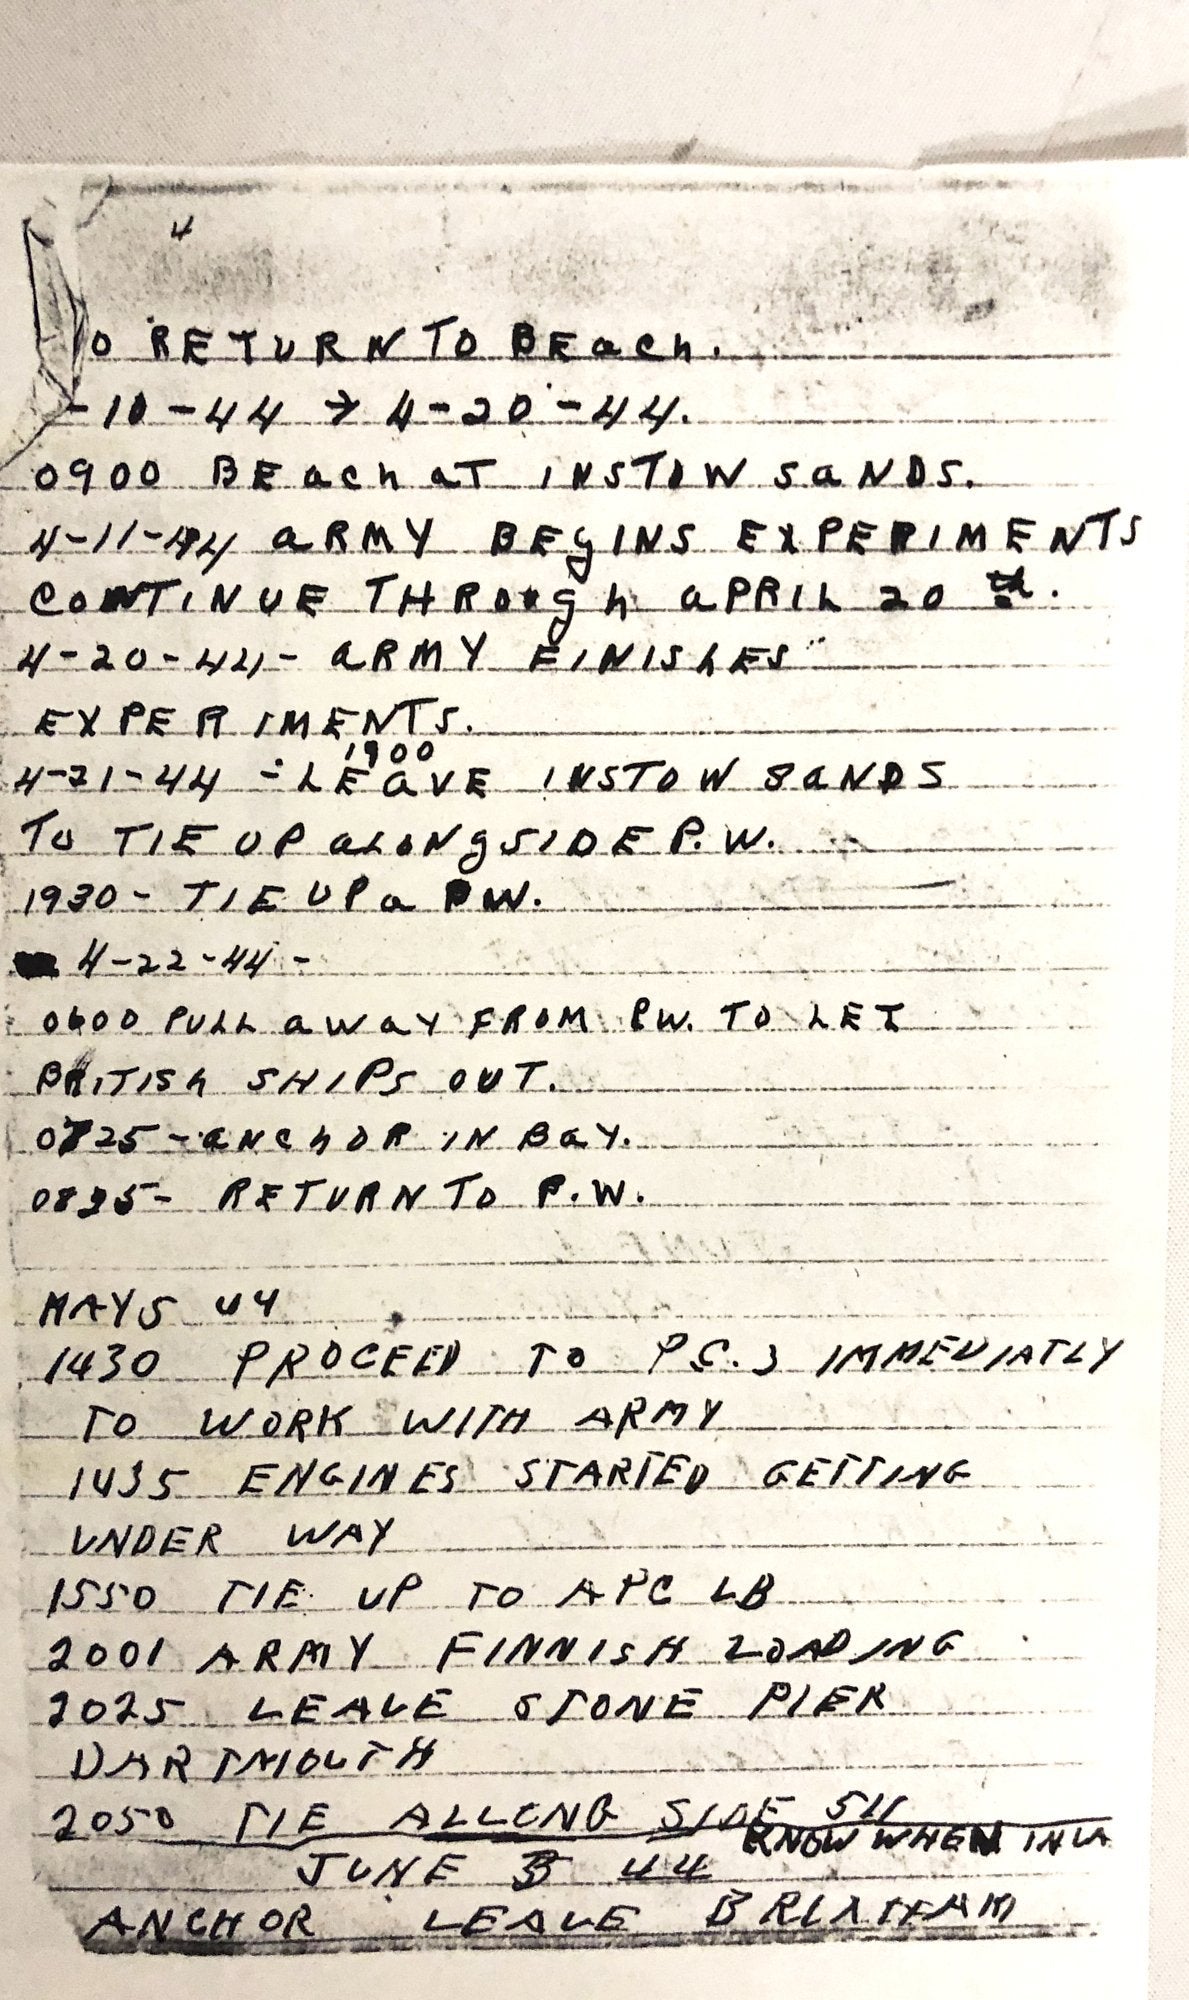 4
O RETURN TO BEach.
-10-44 → 4-20-44.
0900 BEach aT INSTOW SaNDS.
4-11-44 aRMY BEgINS EXPERIMENTS
CONTINUE THROugh aPRIL 20 th.
4-20-44- aRMY FINIShES
EXPERIMENTS.
1900
4-21-44 - LEaVE INSTOW SaNDS
TO TIE UP aLONgSIDE P.W.
1930- TIE UP a PW.
4-22-44-
0600 PULL aWaY FROM PW. TO LET
BRITISh SHIPS OUT.
0725-aNChOR IN BaY.
0835- RETURN TO P.W.
MAY 5 44
1430 PROCEED TO P.C.3 IMMEDIATLY
TO WORK WITH ARMY
1435 ENGINES STARTED GETTING
UNDER WAY
1550 TIE UP TO APC LB
2001 ARMY FINNISH LOADING
2025 LEAVE STONE PIER
DARTMOUTH
2050 TIE ALLONG SIDE 511
KNOW WHEN IN
JUNE 3 44
ANCHOR LEAVE BRIXHAM